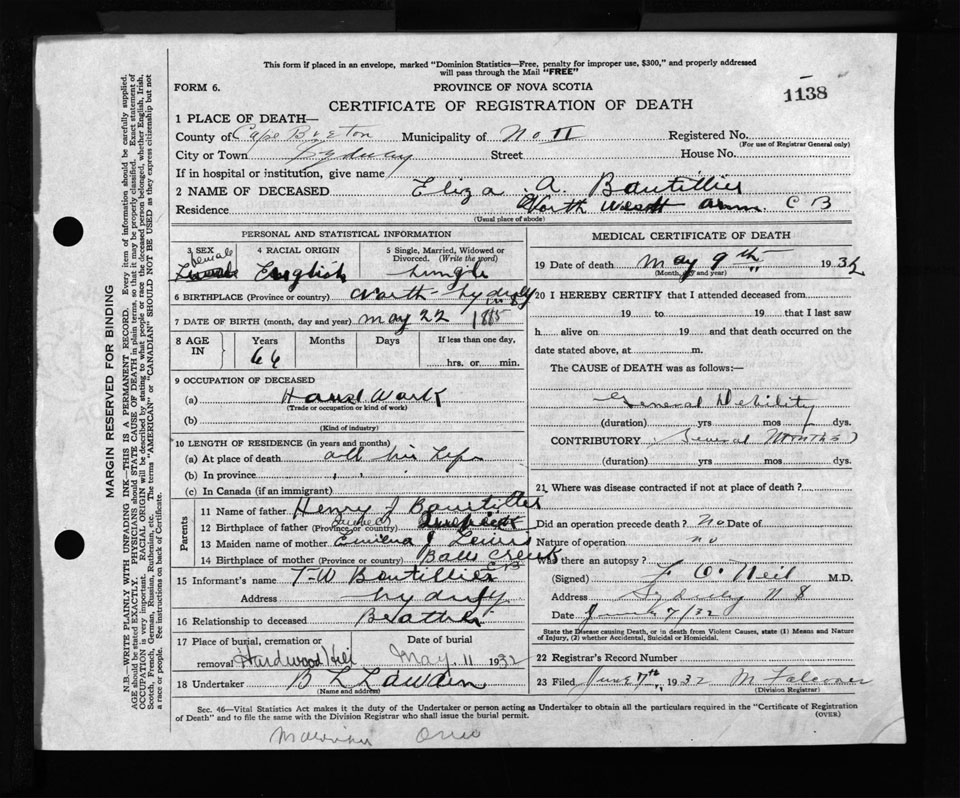 This form if placed in an envelope, marked "Dominion Statistics—Free, penalty for improper use, $300," and properly addressed
will pass through the Mail "FREE"
FORM 6.
PROVINCE OF NOVA SCOTIA
1138
CERTIFICATE OF REGISTRATION OF DEATH
1 PLACE OF DEATH—
County of Cape Breton Municipality of No II Registered No.
(For use of Registrar General only)
City or Town Sydney Street House No.
If in hospital or institution, give name
2 NAME OF DECEASED Eliza A. Boutillier
Residence North West Arm C B
(Usual place of abode)
PERSONAL AND STATISTICAL INFORMATION
3 SEX female
4 RACIAL ORIGIN English
5 Single, Married, Widowed or Divorced. (Write the word) Single
6 BIRTHPLACE (Province or country) North Sydney
7 DATE OF BIRTH (month, day and year) May 22
8 AGE IN Years Months Days If less than one day,
66 hrs. or min.
9 OCCUPATION OF DECEASED
(a) House Work
(Trade or occupation or kind of work)
(b)
(Kind of industry)
10 LENGTH OF RESIDENCE (in years and months)
(a) At place of death all her life
(b) In province
(c) In Canada (if an immigrant)
Parents
11 Name of father Henry J Boutillier
12 Birthplace of father (Province or country)
13 Maiden name of mother J Lewis
14 Birthplace of mother (Province or country) Balls Creek C B
15 Informant's name T W Boutillier
Address Sydney
16 Relationship to deceased Brother
17 Place of burial, cremation or removal Hardwood Hill
Date of burial May 11 1932
18 Undertaker B L
(Name and address)
MEDICAL CERTIFICATE OF DEATH
19 Date of death May 9th 1932
(Month, day and year)
20 I HEREBY CERTIFY that I attended deceased from
19 to 19 that I last saw
h alive on 19 and that death occurred on the
date stated above, at m.
The CAUSE of DEATH was as follows:—
General Debility
(duration) yrs mos dys.
CONTRIBUTORY Several Months
(duration) yrs mos dys.
21 Where was disease contracted if not at place of death?
Did an operation precede death? No Date of
Nature of operation no
Was there an autopsy?
(Signed) F O'Neil M.D.
Address Sydney N S
Date June 7/32
State the Disease causing Death, or in death from Violent Causes, state (1) Means and Nature
of Injury, (2) whether Accidental, Suicidal or Homicidal.
22 Registrar's Record Number
23 Filed June 7th 1932 M Falconer
(Division Registrar)
Sec. 46—Vital Statistics Act makes it the duty of the Undertaker or person acting as Undertaker to obtain all the particulars required in the "Certificate of Registration
of Death" and to file the same with the Division Registrar who shall issue the burial permit.
(OVER)
MARGIN RESERVED FOR BINDING
N.B.—WRITE PLAINLY WITH UNFADING INK—THIS IS A PERMANENT RECORD. Every item of information should be carefully supplied.
AGE should be stated EXACTLY. PHYSICIANS should STATE CAUSE OF DEATH in plain terms, so that it may be properly classified. Exact statement of
OCCUPATION is very important. RACIAL ORIGIN will be described by stating to what people or race the deceased person belonged, whether English, Irish,
Scotch, French, German, Russian, Ruthenian, etc. The terms "AMERICAN" or "CANADIAN" SHOULD NOT BE USED as they express citizenship but not
a race or people. See instructions on back of Certificate.